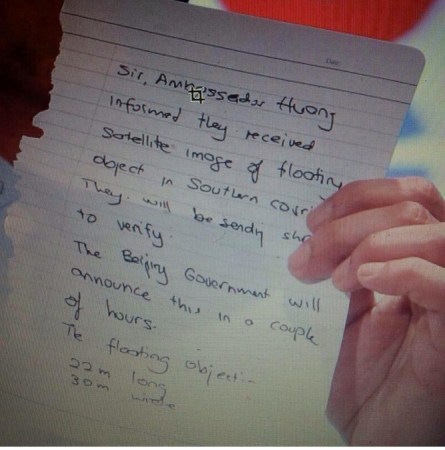 Sir, Ambassador Huang
informed they received
Satellite image of floating
object in Southern
They will be sending
to verify.
The Beijing Government will
announce this in a couple
of hours.
The floating object:-
22m long
30m